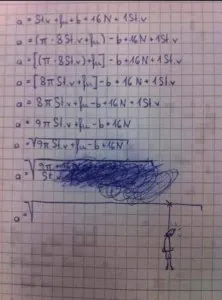 a = St.v + fµ + b + 16N + 1St.v
a = (π · 8St.v + fµ) - b + 16N + 1St.v
a = [(π · 8St.v) + fµ] - b + 16N + 1St.v
a = [8π St.v + fµ] - b + 16N + 1St.v
a = 8π St.v + fµ - b + 16N + 1St.v
a = 9π St.v + fµ - b + 16N
a = √9π St.v + fµ - b + 16N
a = √
a = √